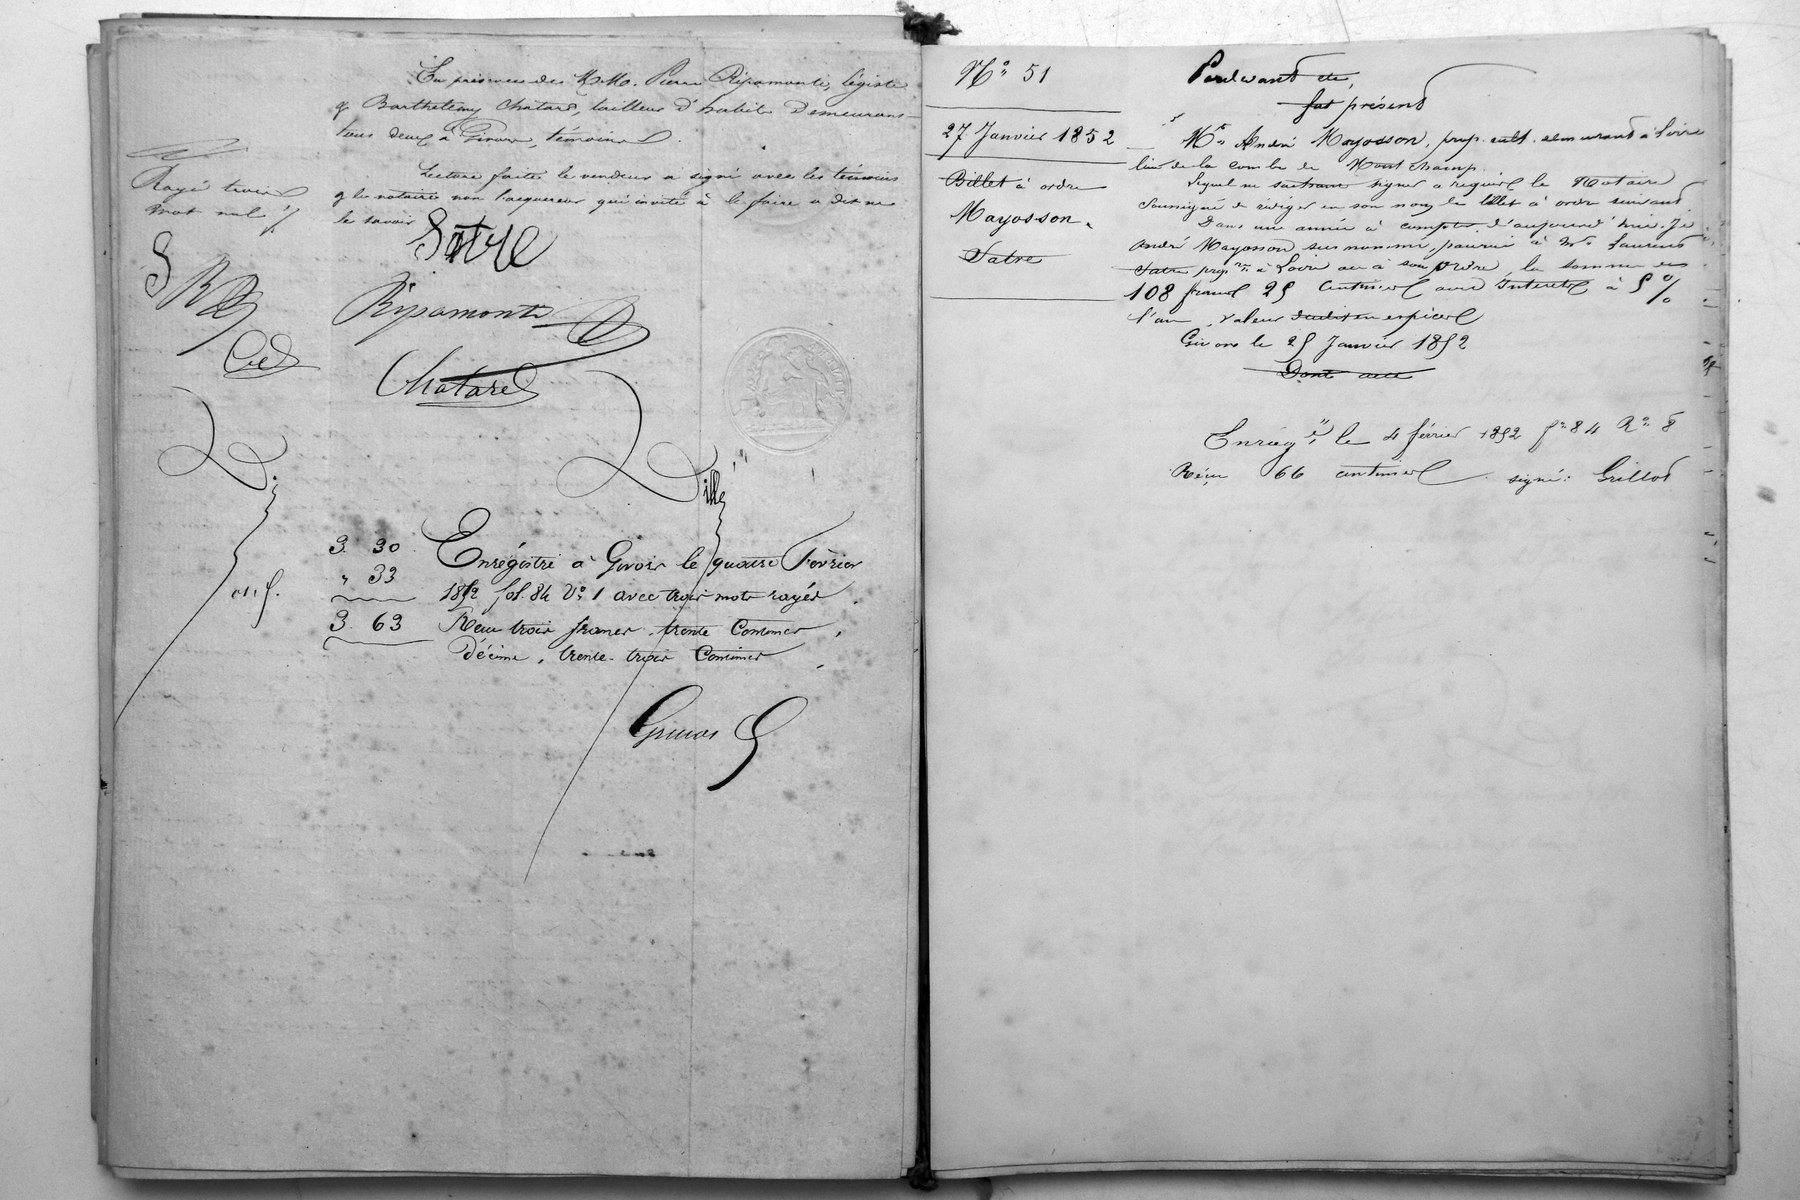 En présence de M.M. Pierre Ripamonti, légiste
& Barthelemy Chatard, tailleur d'habits Demeurans
tous deux à Givors, témoins
Lecture faite le vendeur a signé avec les témoins
& le notaire non l'acquereur qui invité à le faire a dit ne
le savoir
Rayé trois
mot nul
Satre
S
R
Ripamonti
Chatard
Dille
3. 30
" 33
3. 63
Enrégistré à Givors le quatre Février
1852 fol. 84 Vo. 1 avec trois mots rayés
Reçu trois francs, trente Centimes,
Décime, trente-trois Centimes
No. 51
27 Janvier 1852
Billet à ordre
Mayosson
Satre
Pardevant etc,
fut présent
Mr. André Mayosson, prop. cult. demeurant à Loire
lieu de la combe de Montchamp
Lequel ne sachant signer a requis le Notaire
soussigné de rédiger en son nom le billet à ordre suivant
Dans une année à compter d'aujourd'hui, Je
André Mayosson susnommé, paurai à Mr. Laurent
Satre propre. à Loire ou à son ordre, la somme de
108 francs 25 centimes avec Interets à 5 %
l'an, valeur en espèces
Givors le 25 Janvier 1852
Dont acte
Enregé. le 4 février 1852 fo. 84 Ro. 8
Reçu 66 centimes. signé: Grillot